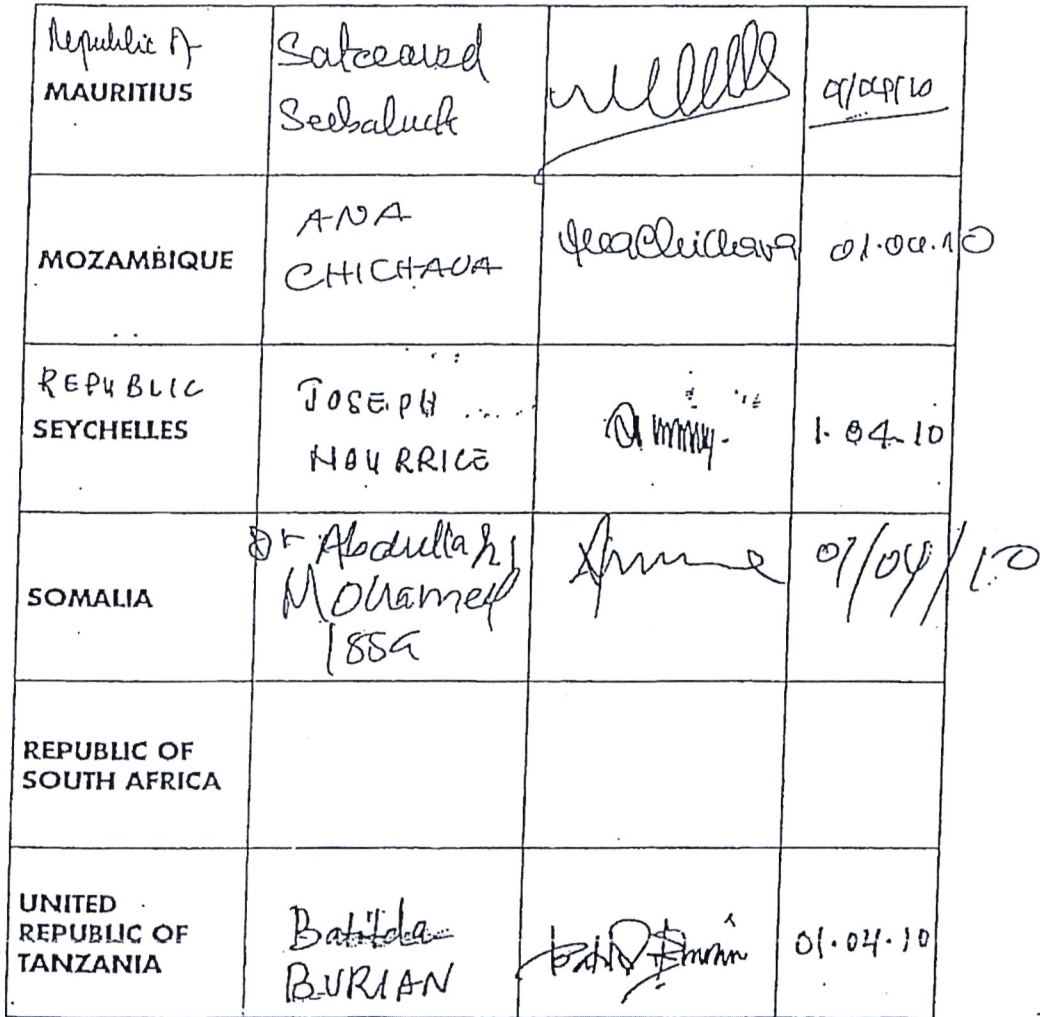 Republic of
MAURITIUS
Satceeved
Seebaluck
01/04/10
MOZAMBIQUE
ANA
CHICHAVA
AnaChichava
01.04.10
REPUBLIC
SEYCHELLES
JOSEPH
NOURRICE
1.04.10
SOMALIA
Dr Abdullahi
Mohamed
Issa
01/04/10
REPUBLIC OF
SOUTH AFRICA
UNITED
REPUBLIC OF
TANZANIA
Batilda
BURIAN
01.04.10